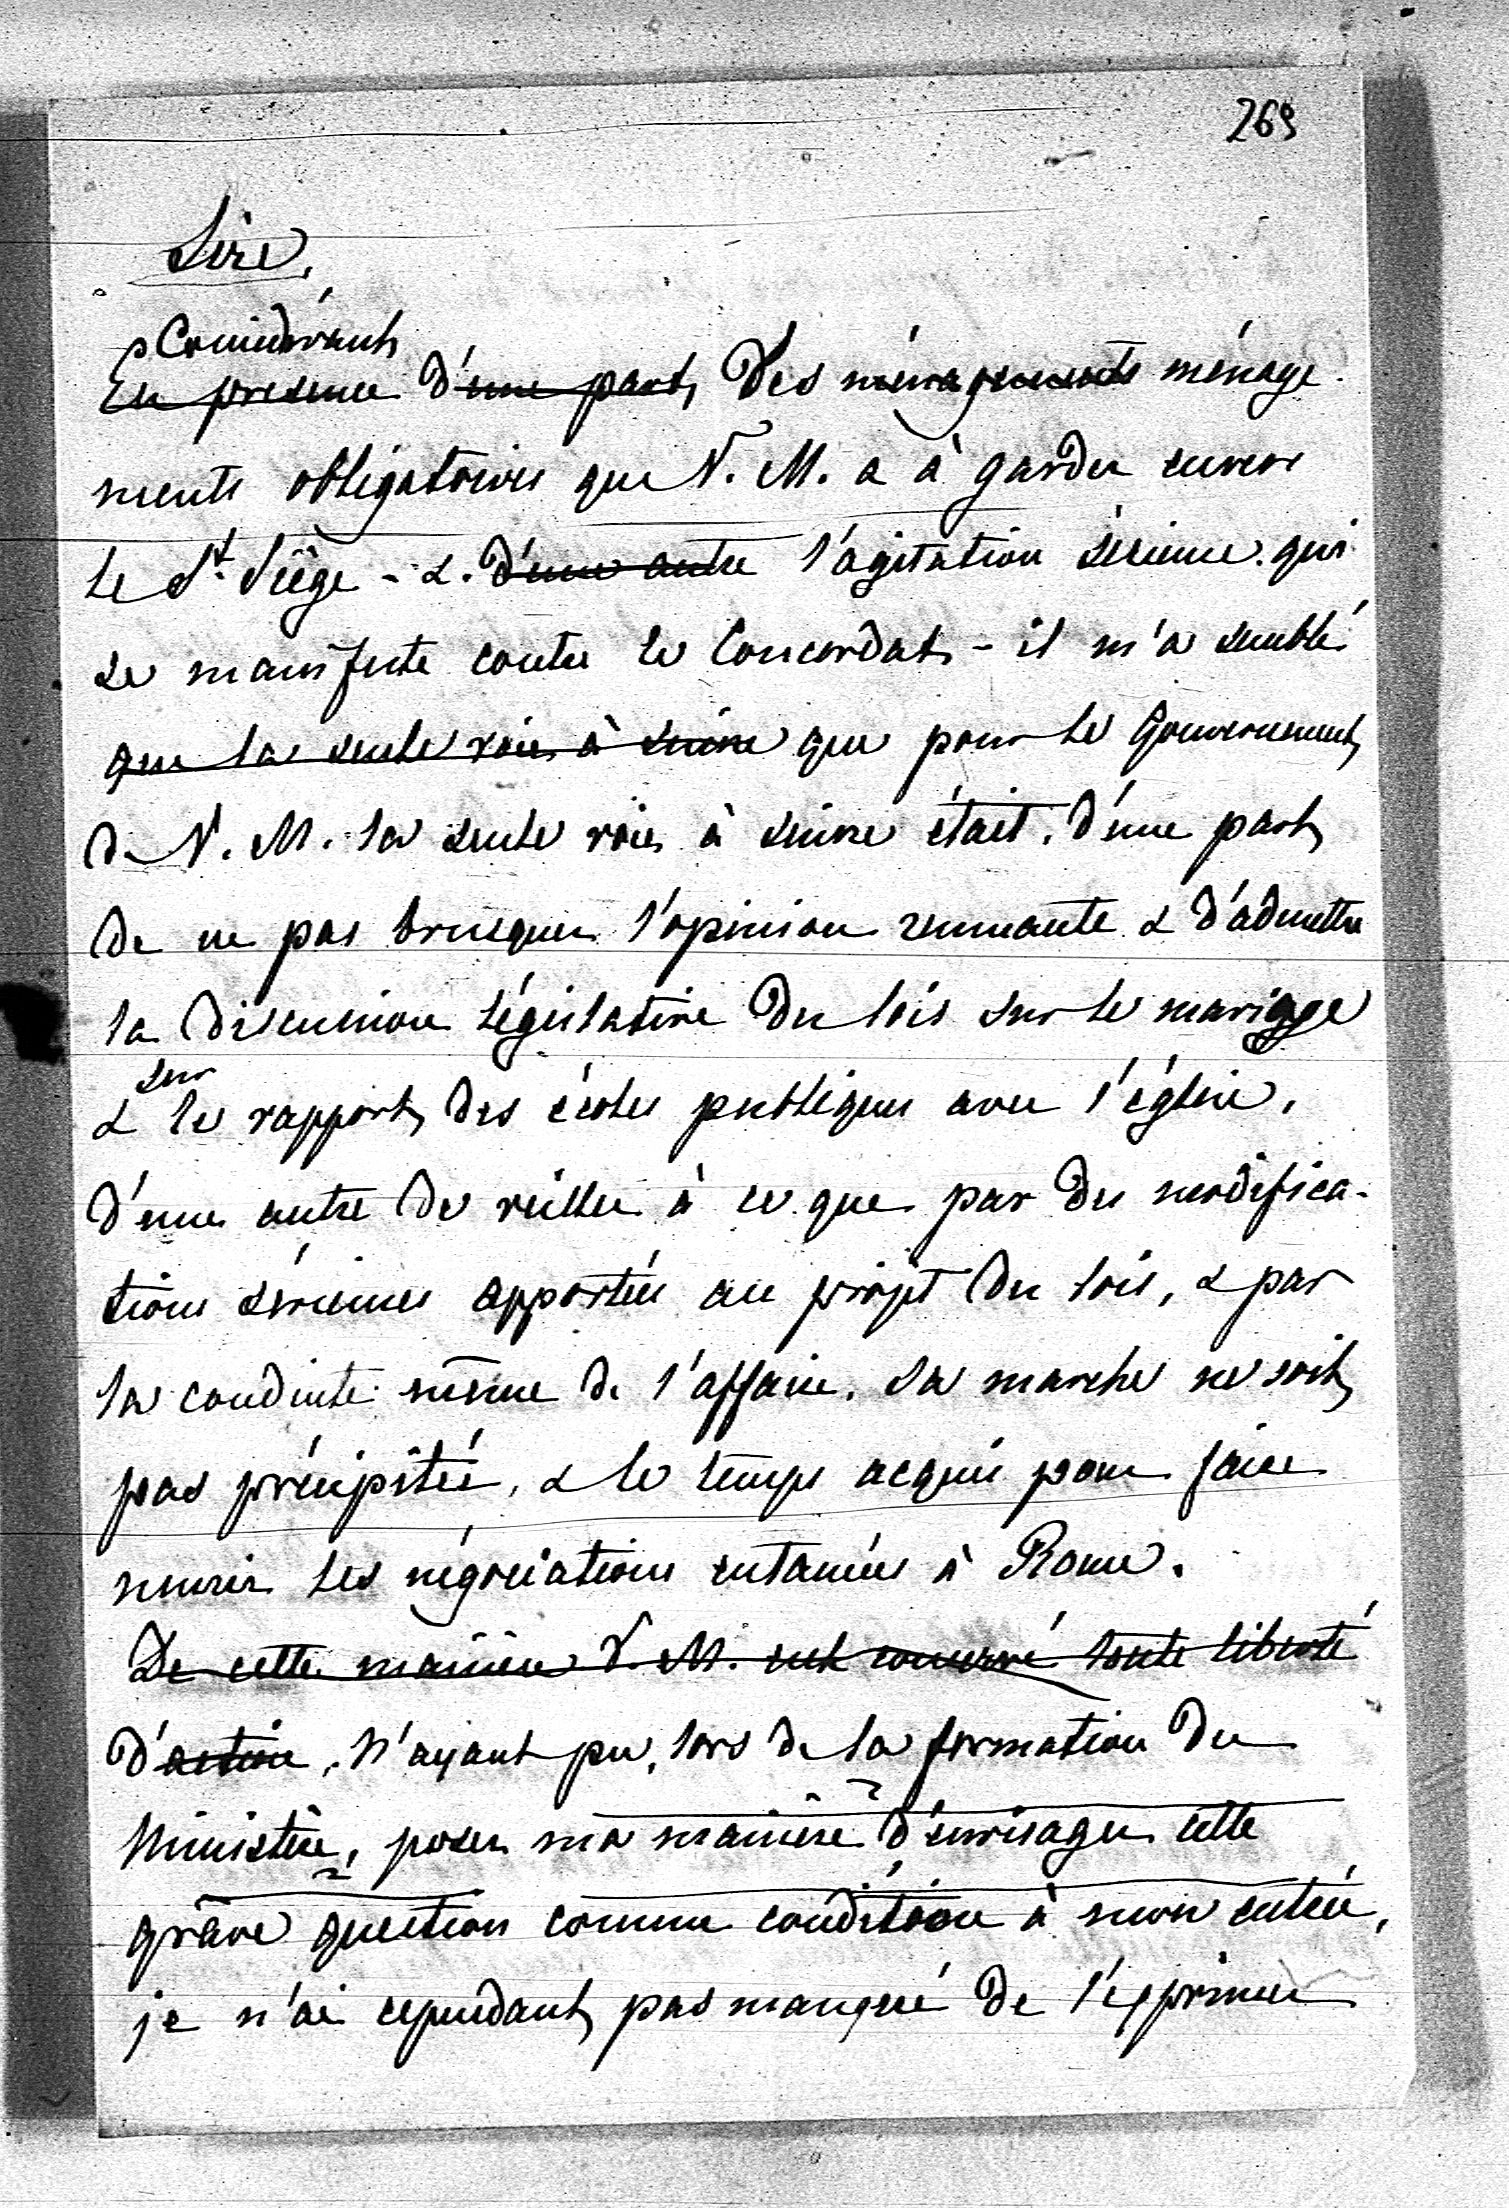 269
Sire,
Considérant
En presence d'une part, des ménagements ménage-
ments obligatoires que V. M. a à garder envers
le St. Siège - & d'une autre l'agitation sérieuse qui
se manifeste contre le Concordat - il m'a semblé
que la seule voie à suivre que pour le Gouvernement
de V. M. la seule voie à suivre était, d'une part
de ne pas brusquer l'opinion remuante & d'admettre
la discussion législative des lois sur le mariage
sur
& le rapport des écoles publiques avec l'église,
d'une autre de veiller à ce que par des modifica-
tions sérieuses apportées au projet des lois, & par
la conduite même de l'affaire, sa marche ne soit
pas précipitée, & le temps acquis pour faire
murir les négociations entamées à Rome.
De cette manière V. M. eut conservé toute liberté
d'action, N'ayant pu, lors de la formation du
Ministère, poser ma manière d'envisager cette
grâve question comme condition à mon entrée,
je n'ai cependant pas manqué de l'exprimer